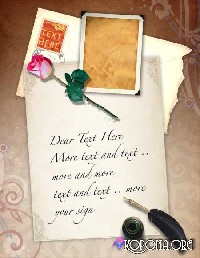 TEXT
HERE
Dear Text Here
More text and text ..
more and more
text and text .. more
your sign
KORONA.ORG